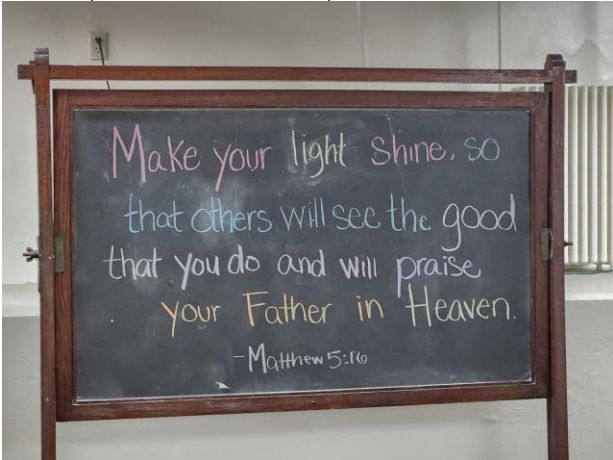 Make your light shine, so
that others will see the good
that you do and will praise
your Father in Heaven.
-Matthew 5:16